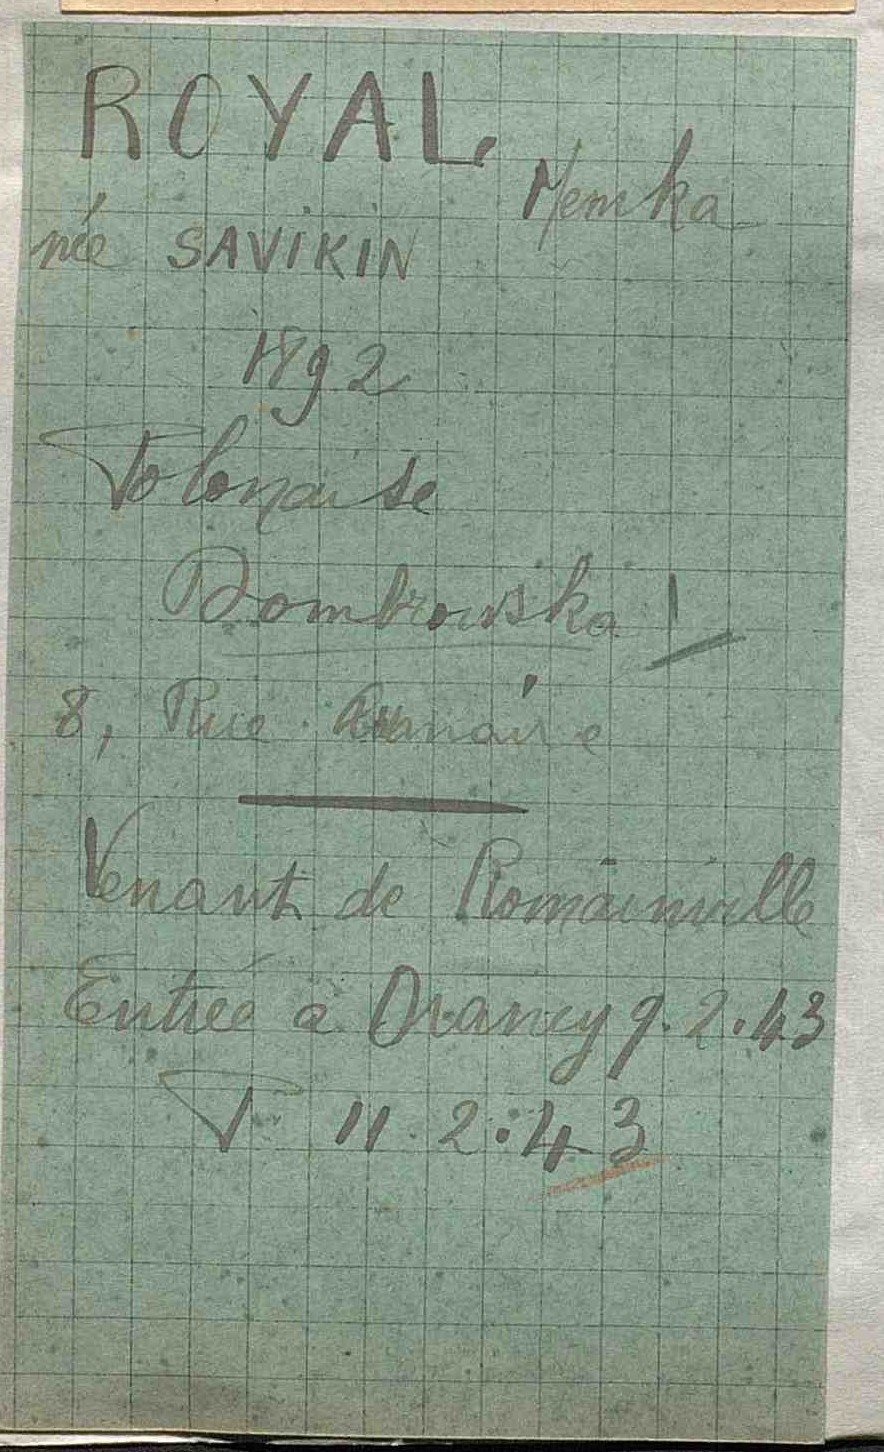 ROYAL
Memka
née SAVIKIN
1892
Polonaise
Dombrowska
8, Rue
Venant de Romainville
Entrée à Drancy 9.2.43
P 11.2.43